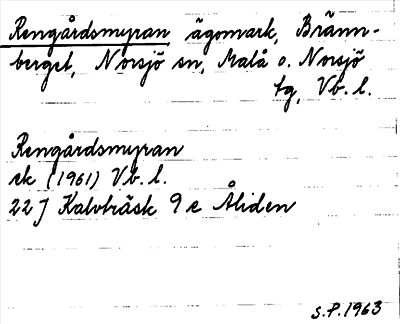 Rengårdsmyran ägomark, Bränn-
berget, Norsjö sn, Malå o. Norsjö
tg, Vb. l.
Rengårdsmyran
ek (1961) Vb. l.
22 J Kalvträsk 9 e Åliden
S.P. 1963